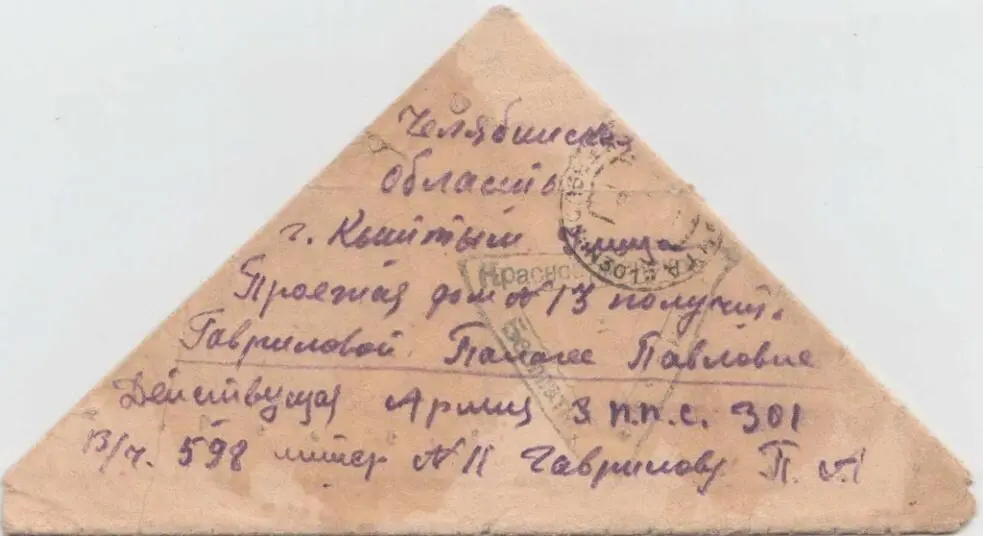 Челябинская
область
г. Кыштым улица
Проезжая дом №13 получит.
Гавриловой Павловне
Действующая Армия 3 п.п.с. 301
в/ч. 598 литер №11 Гаврилову П. А
Красноа
Бесплат